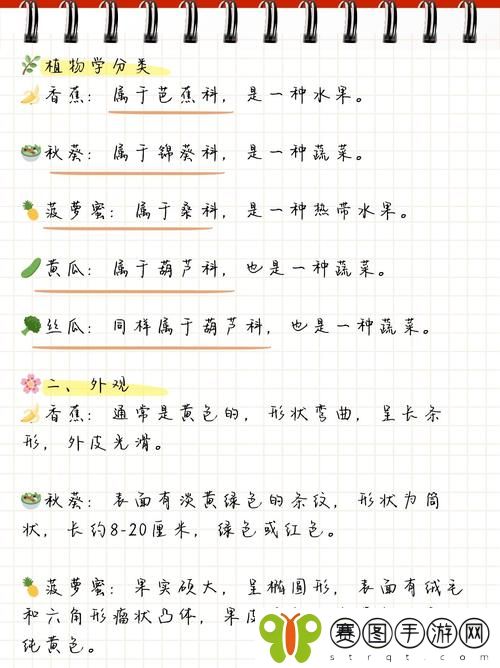 植物学分类
香蕉：属于芭蕉科，是一种水果。
秋葵：属于锦葵科，是一种蔬菜。
菠萝蜜：属于桑科，是一种热带水果。
黄瓜：属于葫芦科，也是一种蔬菜。
丝瓜：同样属于葫芦科，也是一种蔬菜。
二、外观
香蕉：通常是黄色的，形状弯曲，呈长条
形，外皮光滑。
秋葵：表面有淡黄绿色的条纹，形状为筒
状，长约8-20厘米，绿色或红色。
菠萝蜜：果实硕大，呈椭圆形，表面有绒毛
和六角形瘤状凸体，果皮
纯黄色。
赛图手游网
strqt.com